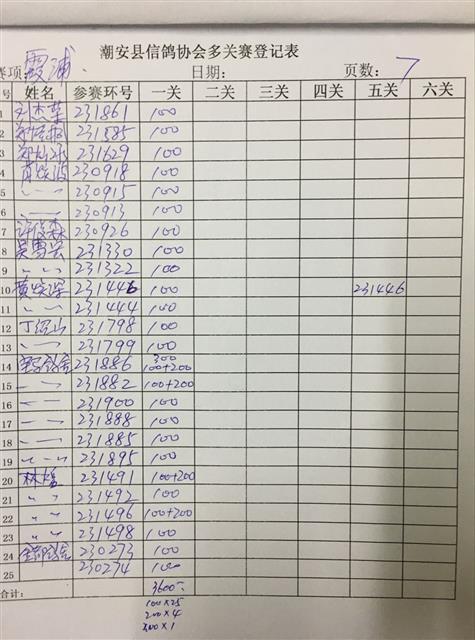 潮安县信鸽协会多关赛登记表
赛项：霞浦 日期： 页数：7
号 姓名 参赛环号 一关 二关 三关 四关 五关 六关
1 刘杰荣 231861 100
2 231585 100
3 231629 100
4 230918 100
5 〃 〃 230915 100
6 230913 100
7 许俊森 230926 100
8 231330 100
9 〃 〃 231322 100
10 231446 100 231446
11 〃 〃 231444 100
12 231798 100
13 〃 〃 231799 100
14 231886 300 100+200
15 〃 〃 231882 100+200
16 〃 〃 231900 100
17 〃 〃 231888 100
18 〃 〃 231885 100
19 〃 〃 231895 100
20 231491 100+200
21 〃 〃 231492 100
22 〃 〃 231496 100+200
23 〃 〃 231498 100
24 230273 100
25 230274 100
合计： 3600
100×25
200×4
300×1